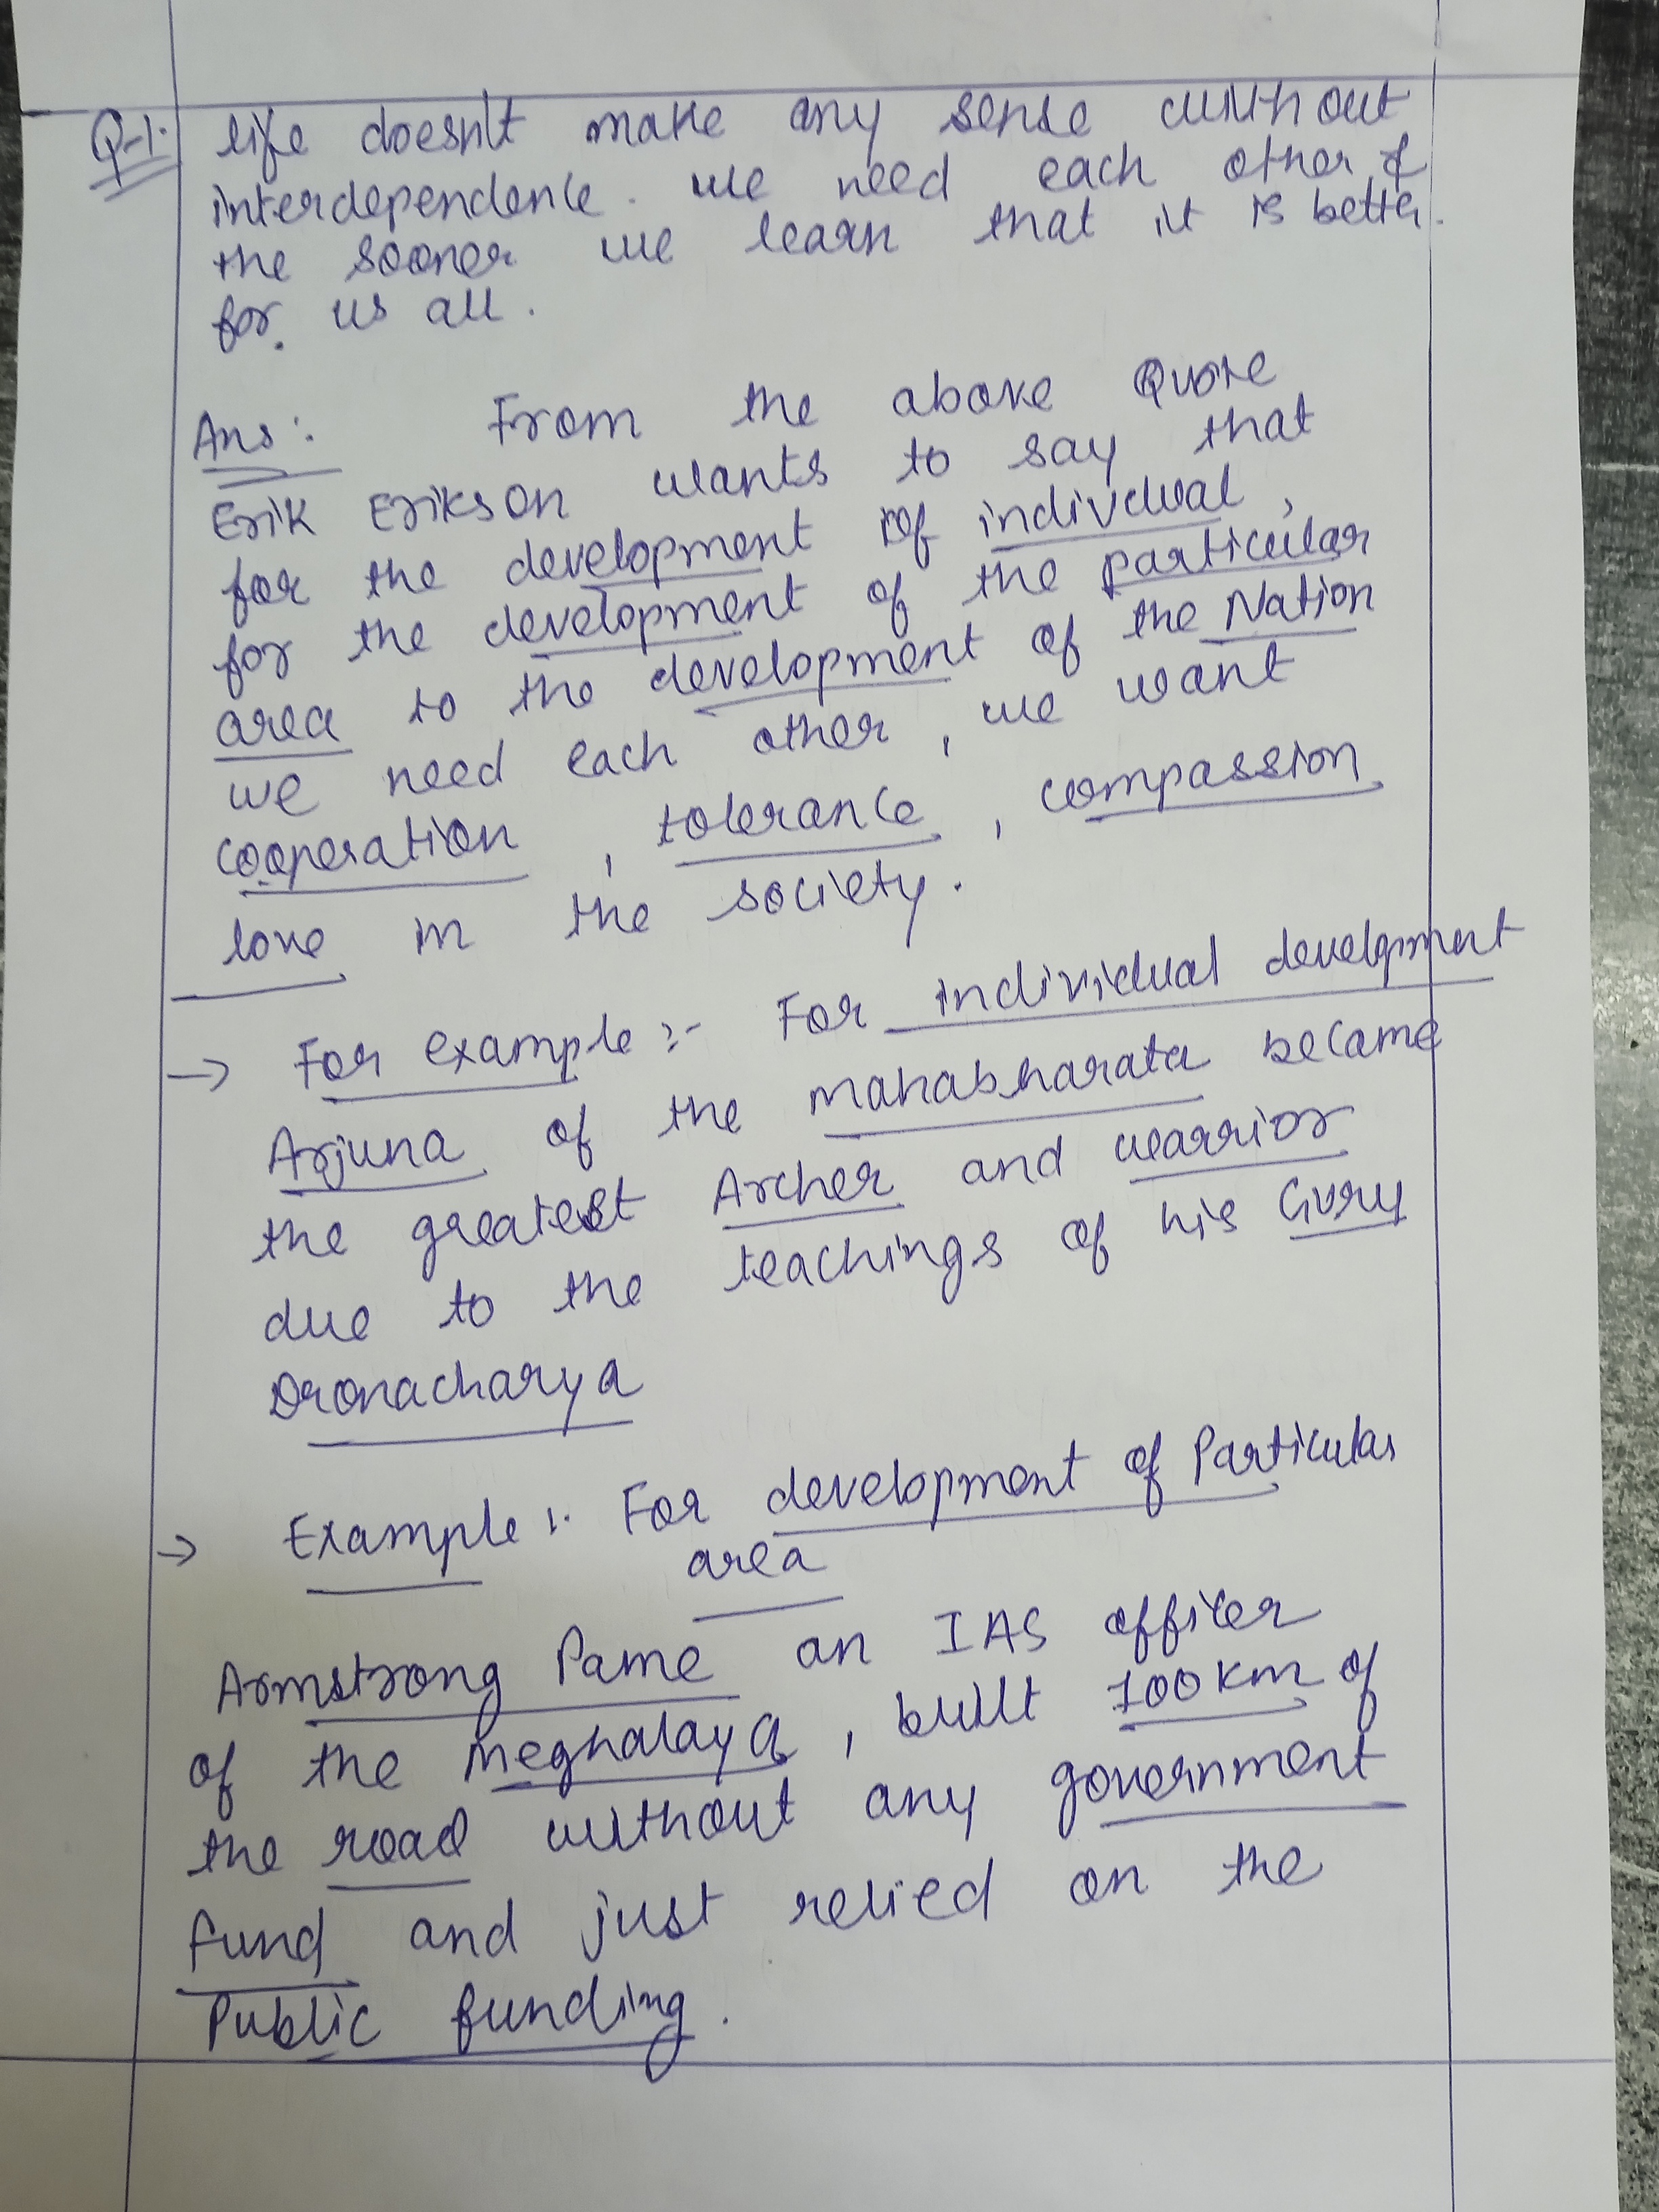 Q-1. life doesn't make any sense without
interdependence. we need each other &
the sooner we learn that it is better.
for us all.
Ans:- From the above Quote
Erik Erikson wants to say that
for the development of indivdual,
for the development of the particular
area to the development of the Nation
we need each other, we want
cooperation, tolerance, compassion
love in the society.
→ For example :- For individual development
Arjuna of the mahabharata became
the greatest Archer and warrior
due to the teachings of his Guru
Dronacharya
→ Example :- For development of Particular
area
Armstrong Pame an IAS officer
of the Meghalaya, built 100 km of
the road without any government
fund and just relied on the
Public funding.